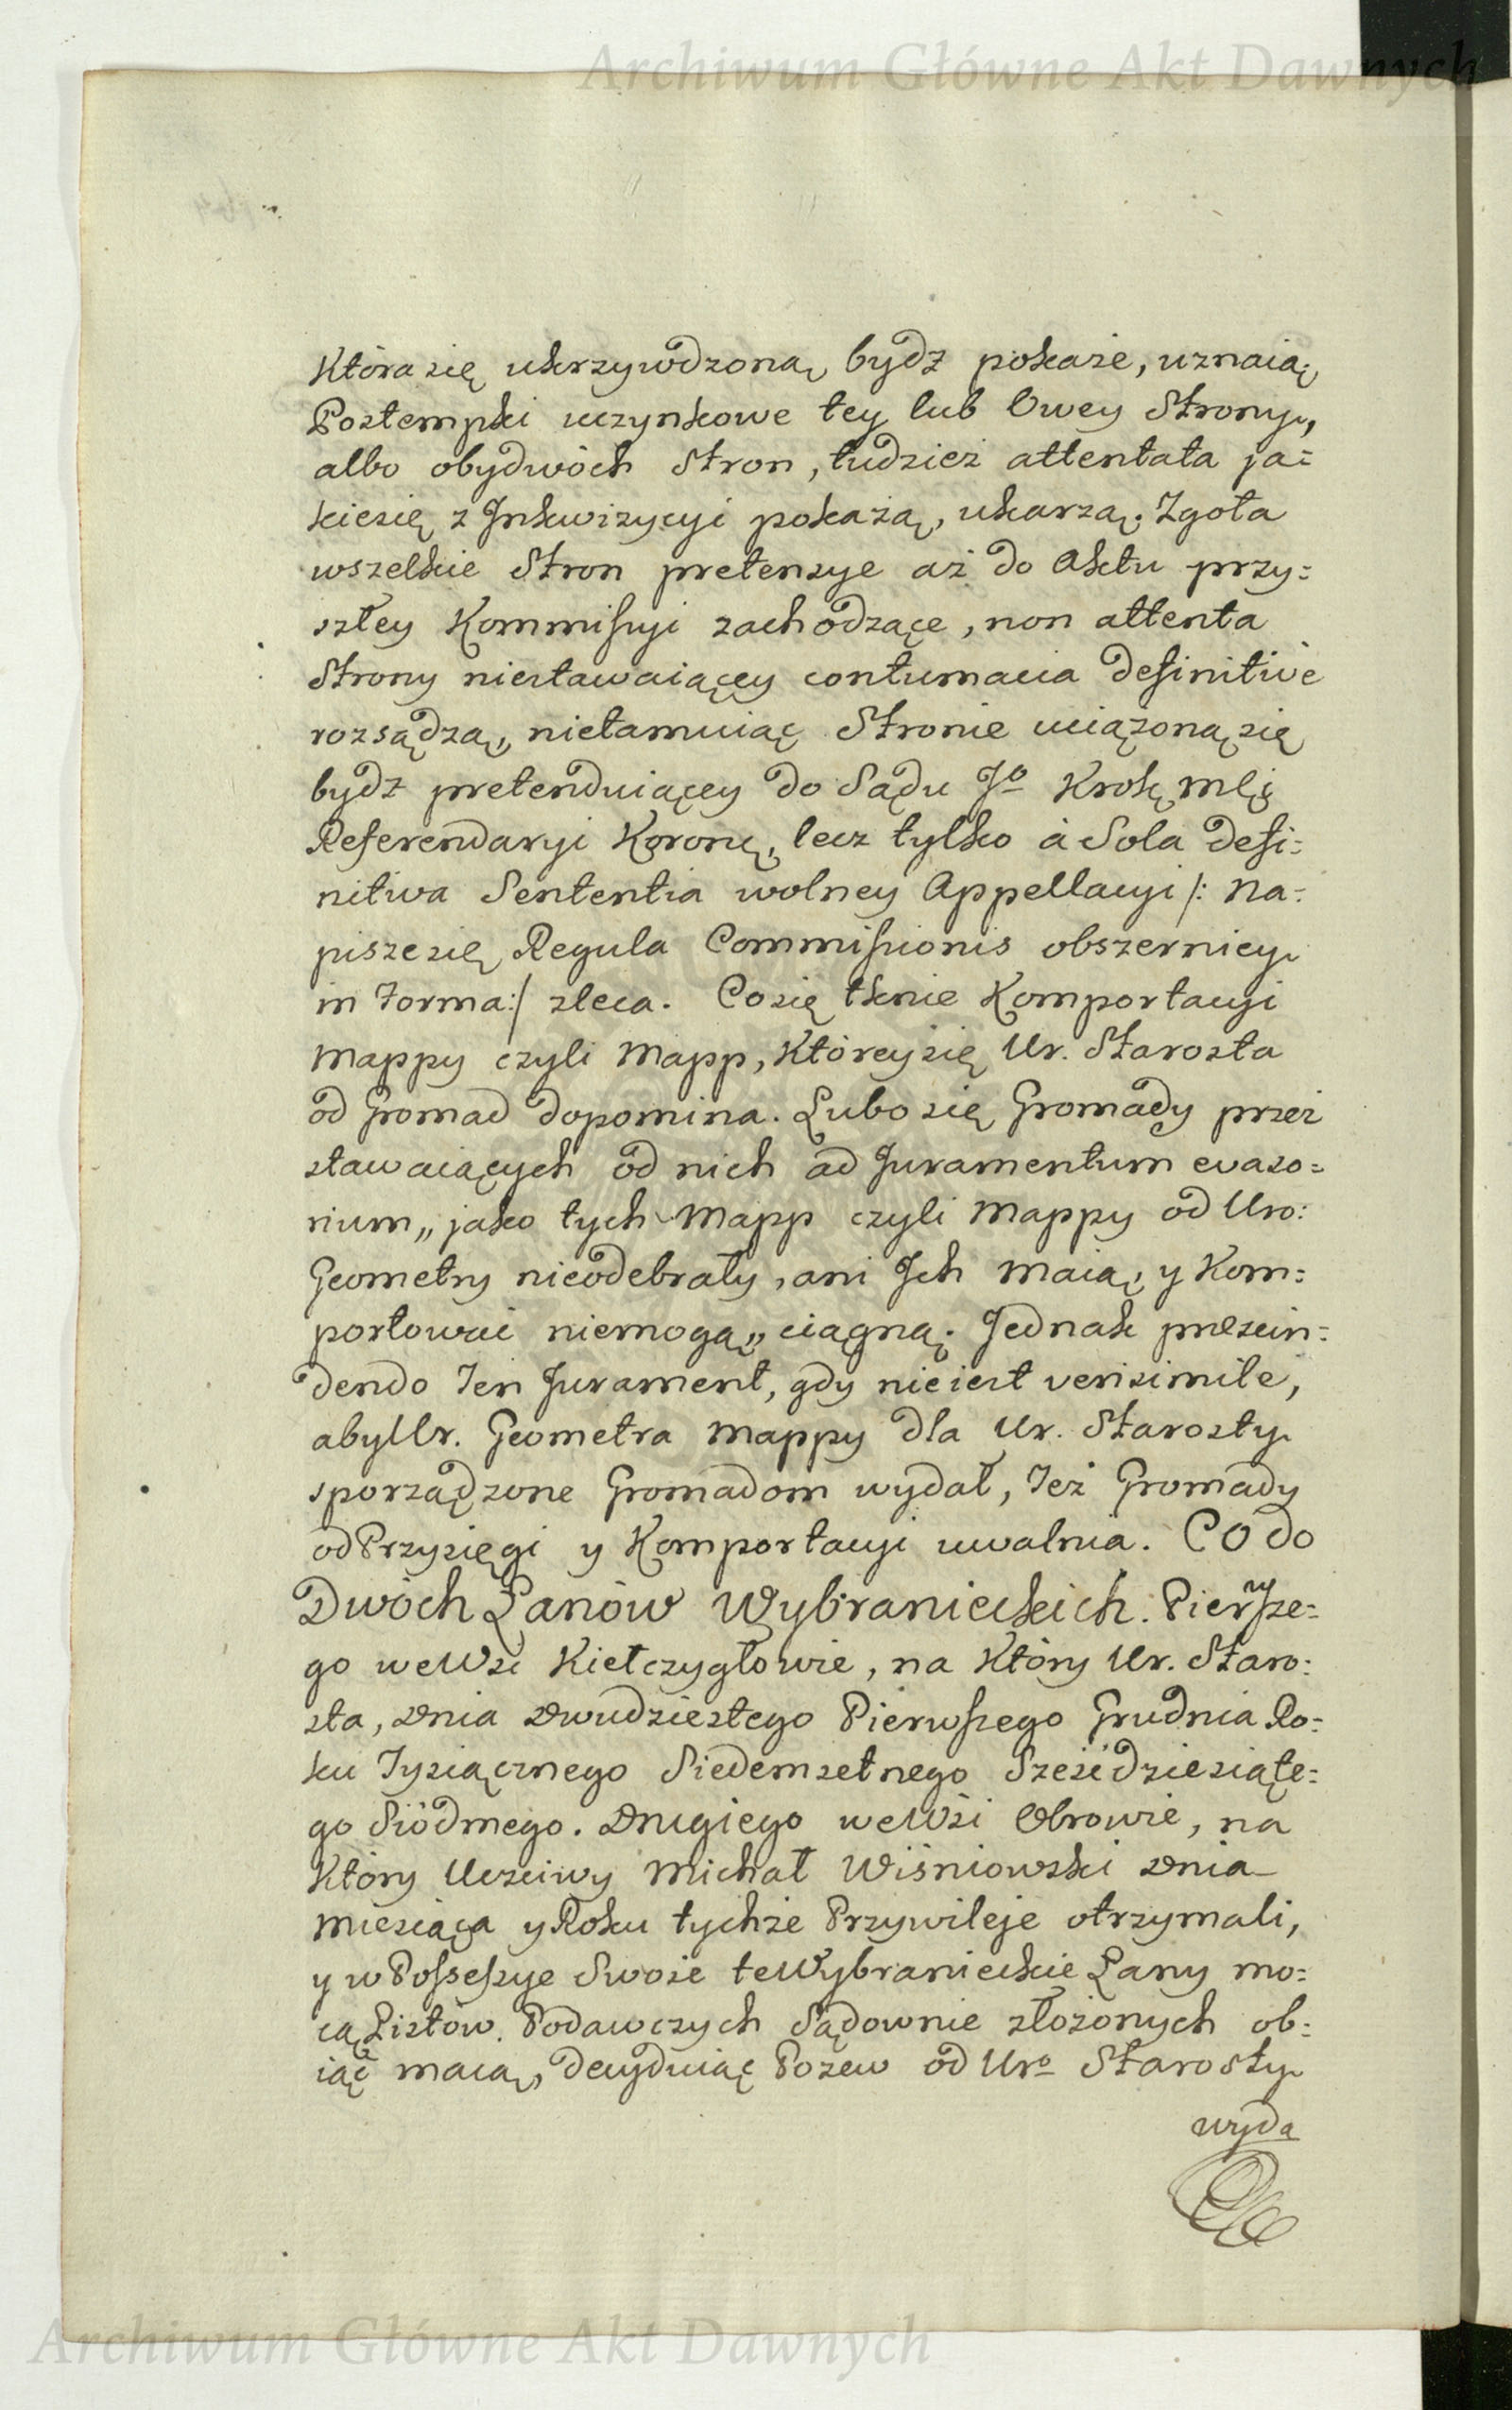 Archiwum Główne Akt Dawnych
Która się ukrzywdzoną bydz pokaże, uznaią
Postempki uczynkowe tey lub Owey Strony,
albo obydwóch Stron, tudzież attentata ja=
kie się z Inkwizycyi pokażą, ukarzą. Zgoła
wszelkie Stron pretensye aż do Aktu przy=
szłey Kommissyi zachodzące, non attenta
Strony niestawaiącey contumacia definitivè
rozsądzą, nietamuiąc Stronie uciążoną się
bydz pretenduiącey do Sądu Jo Krolę Mcię
Referendaryi Koronę, lecz tylko à Sola defi=
nitiva Sententia wolney Appellacyi /: na=
pisze się Regula Commissionis obszerniey
in Forma:/ zleca. Co się tknie Komportacyi
Mappy czyli Mapp, Którey się Ur. Starosta
od Gromad dopomina. Lubo się Gromady przez
stawaiących od nich ad Juramentum evaso=
rium,, jako tych Mapp czyli Mappy od Uro:
Geometry nieodebrały, ani Ich maią, y Kom=
portować niemogą,, ciągną. Jednak prescin=
dendo Ten Jurament, gdy nie iest verisimile,
aby Ur. Geometra Mappy dla Ur. Starosty
sporządzone Gromadom wydał, Też Gromady
od Przysięgi y Komportacyi uwalnia. Co do
Dwóch Łanów Wybranieckich. Pierwsze=
go we Wsi Kiełczygłowie, na Który Ur. Staro=
sta, Dnia Dwudziestego Pierwszego Grudnia Ro=
ku Tysiącznego Siedemsetnego Sześćdziesiąte=
go Siódmego. Drugiego we Wsi Obrowie, na
Który Uczciwy Michał Wiśniowski Dnia
Miesiąca y Roku tychże Przywileje otrzymali,
y w Possessye Swoie te Wybranieckie Łany mo=
cą Listów Podawczych Sądownie złożonych ob=
iąć maią, decyduiąc Pozew od Uro Starosty
wyda
Archiwum Główne Akt Dawnych